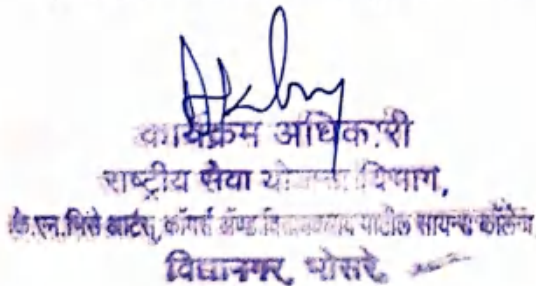 कार्यक्रम अधिकारी
राष्ट्रीय सेवा योजना विभाग,
के.एन.भिसे आर्टस्, कॉमर्स अॅण्ड विनायकराव पाटील सायन्स कॉलेज
विद्यानगर, भोसरे,